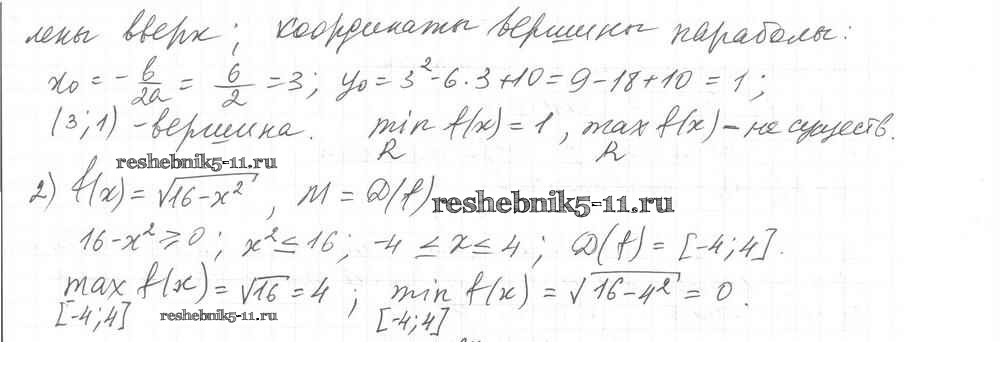 лены вверх; координаты вершины параболы:
x₀ = -b/2a = 6/2 = 3; y₀ = 3² - 6·3 + 10 = 9 - 18 + 10 = 1;
(3; 1) - вершина. min f(x) = 1, max f(x) - не существ.
R R
reshebnik5-11.ru
2) f(x) = √(16-x²), M = D(f)
reshebnik5-11.ru
16-x² ≥ 0; x² ≤ 16; -4 ≤ x ≤ 4; D(f) = [-4; 4].
max f(x) = √16 = 4; min f(x) = √(16-4²) = 0.
[-4; 4] [-4; 4]
reshebnik5-11.ru